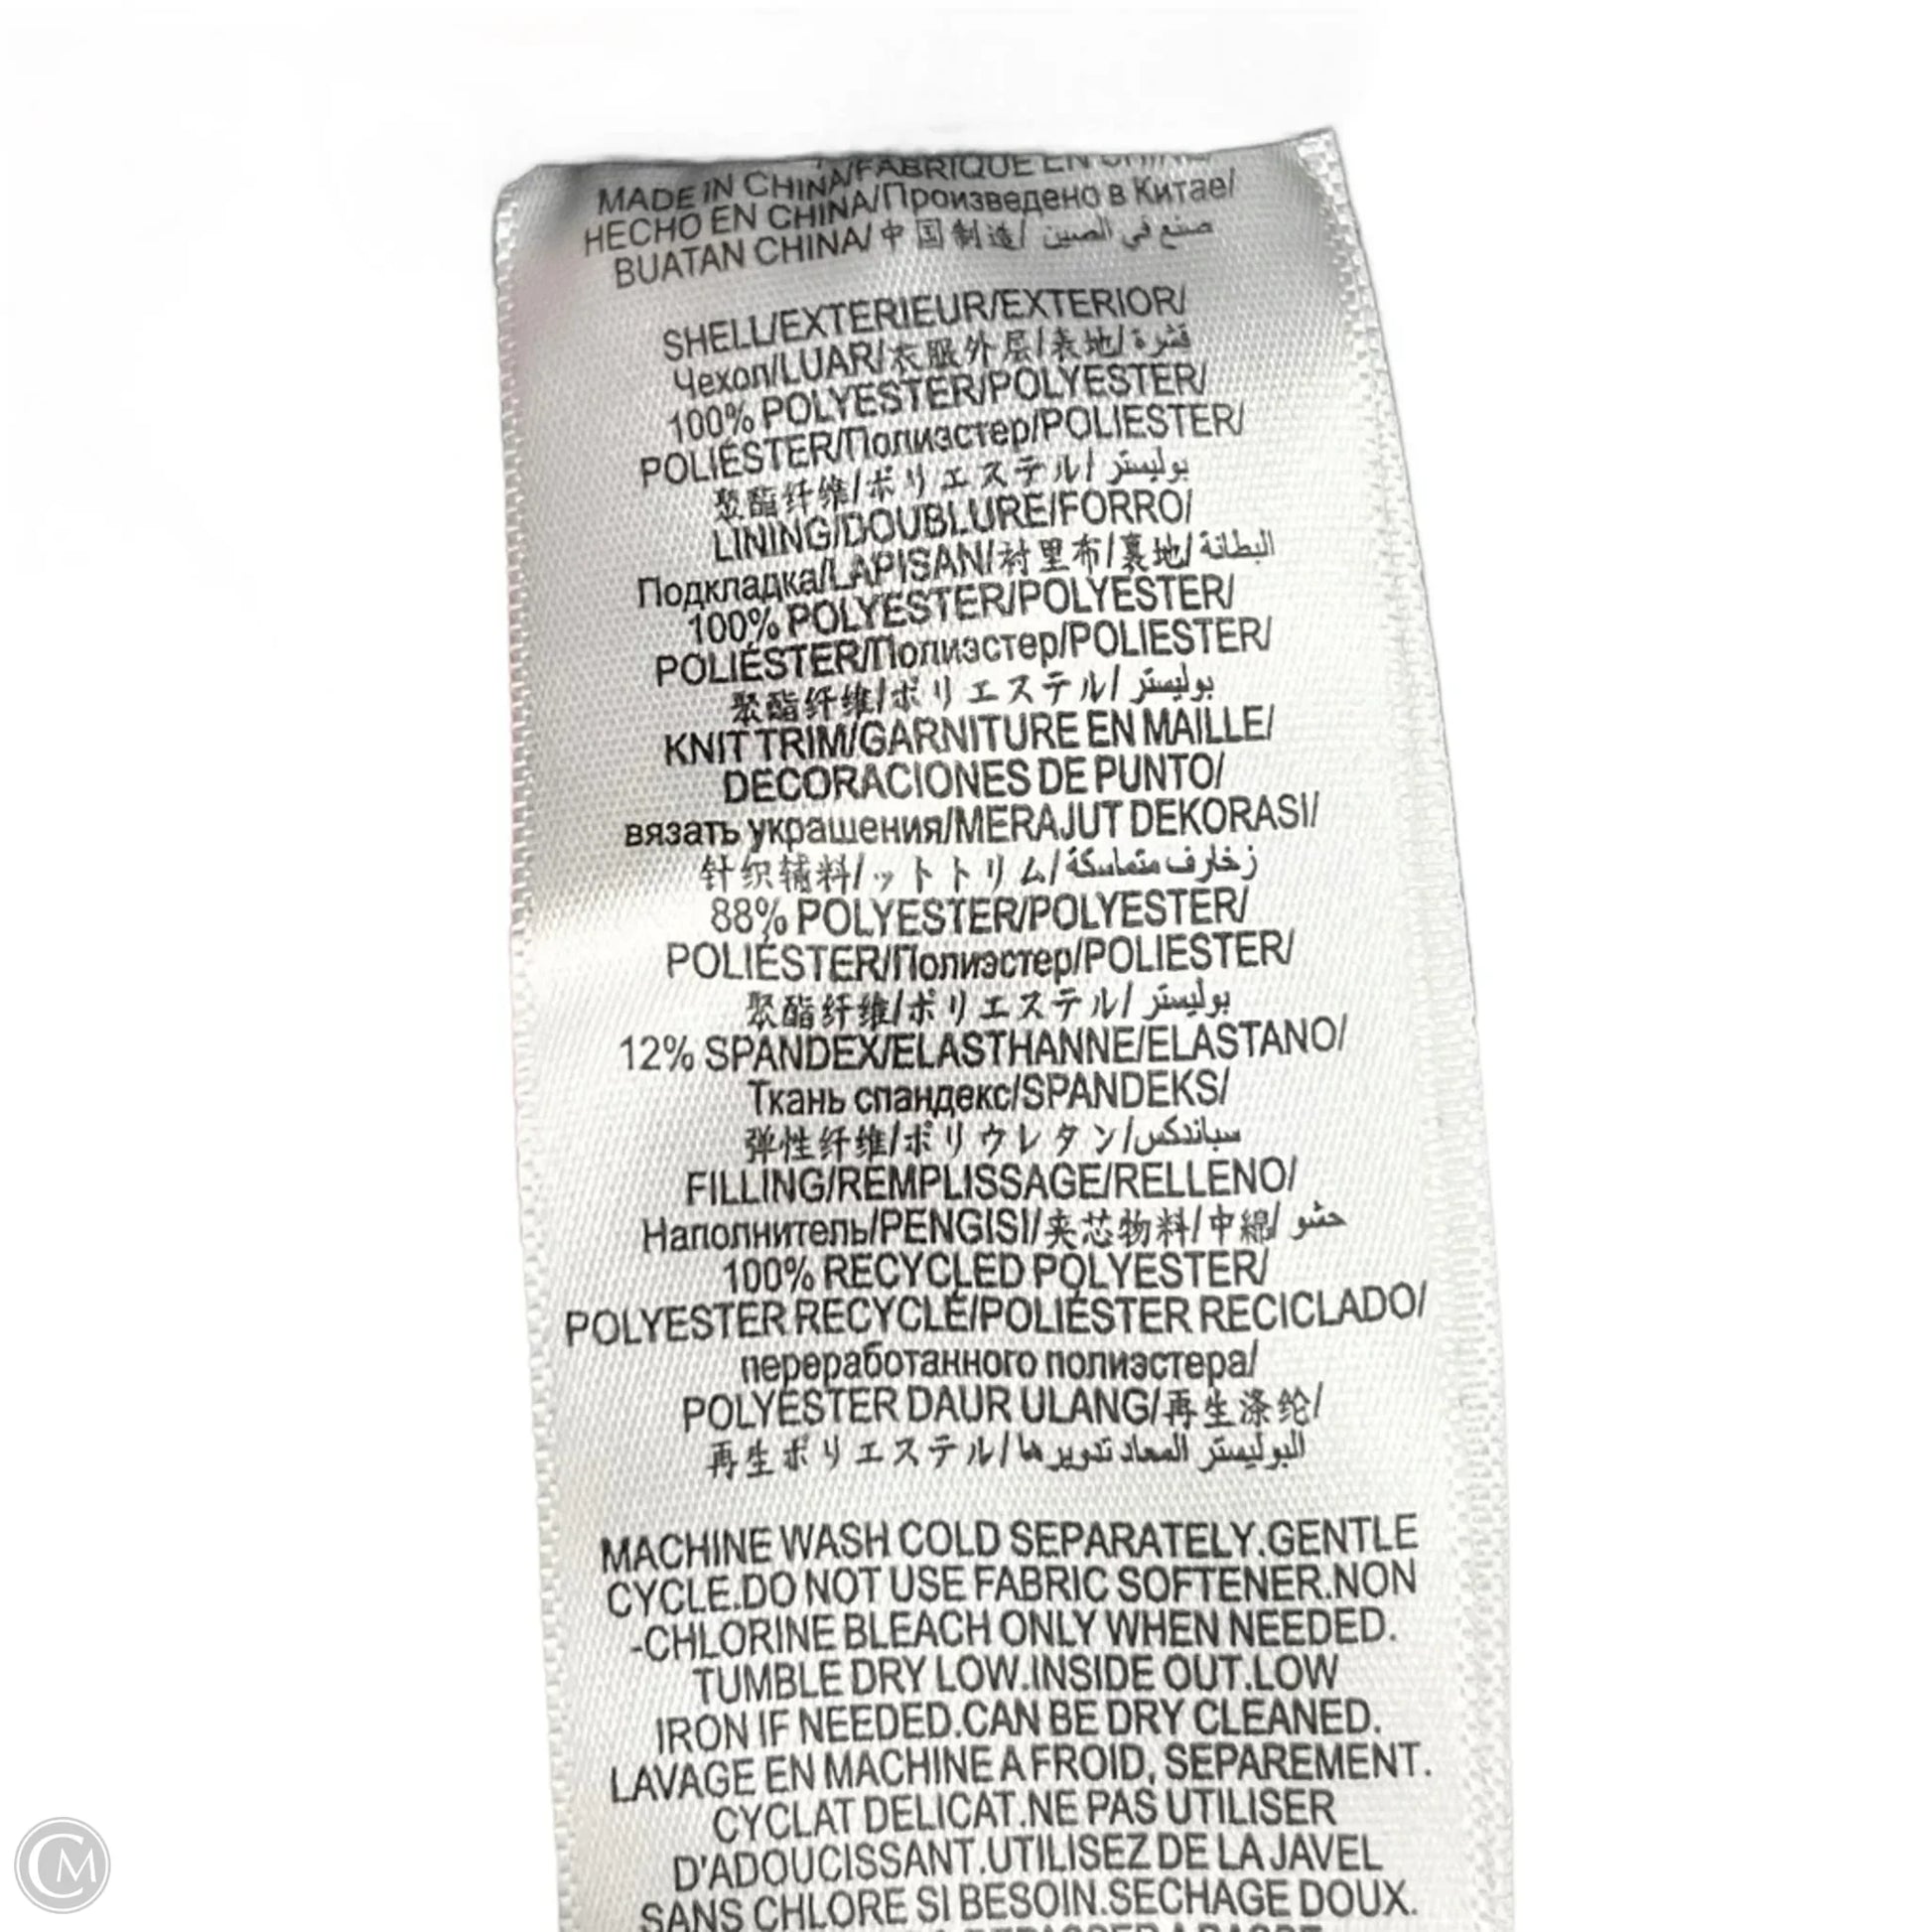 MADE IN CHINA/FABRIQUE EN CHINE
HECHO EN CHINA/Произведено в Китае/
BUATAN CHINA/中国制造/ صنع في الصين
SHELL/EXTERIEUR/EXTERIOR/
Чехол/LUAR/衣服外层/表地/قشرة
100% POLYESTER/POLYESTER/
POLIÉSTER/Полиэстер/POLIESTER/
聚酯纤维/ポリエステル/ بوليستر
LINING/DOUBLURE/FORRO/
Подкладка/LAPISAN/衬里布/裏地/البطانة
100% POLYESTER/POLYESTER/
POLIÉSTER/Полиэстер/POLIESTER/
聚酯纤维/ポリエステル/ بوليستر
KNIT TRIM/GARNITURE EN MAILLE/
DECORACIONES DE PUNTO/
вязать украшения/MERAJUT DEKORASI/
针织辅料/ットトリム/زخارف متماسكة
88% POLYESTER/POLYESTER/
POLIÉSTER/Полиэстер/POLIESTER/
聚酯纤维/ポリエステル/ بوليستر
12% SPANDEX/ELASTHANNE/ELASTANO/
Ткань спандекс/SPANDEKS/
弹性纤维/ポリウレタン/سباندكس
FILLING/REMPLISSAGE/RELLENO/
Наполнитель/PENGISI/夹芯物料/中綿/ حشو
100% RECYCLED POLYESTER/
POLYESTER RECYCLÉ/POLIÉSTER RECICLADO/
переработанного полиэстера/
POLYESTER DAUR ULANG/再生涤纶/
再生ポリエステル/البوليستر المعاد تدويرها
MACHINE WASH COLD SEPARATELY.GENTLE
CYCLE.DO NOT USE FABRIC SOFTENER.NON
-CHLORINE BLEACH ONLY WHEN NEEDED.
TUMBLE DRY LOW.INSIDE OUT.LOW
IRON IF NEEDED.CAN BE DRY CLEANED.
LAVAGE EN MACHINE A FROID, SEPAREMENT.
CYCLAT DELICAT.NE PAS UTILISER
D'ADOUCISSANT.UTILISEZ DE LA JAVEL
SANS CHLORE SI BESOIN.SECHAGE DOUX.
CM